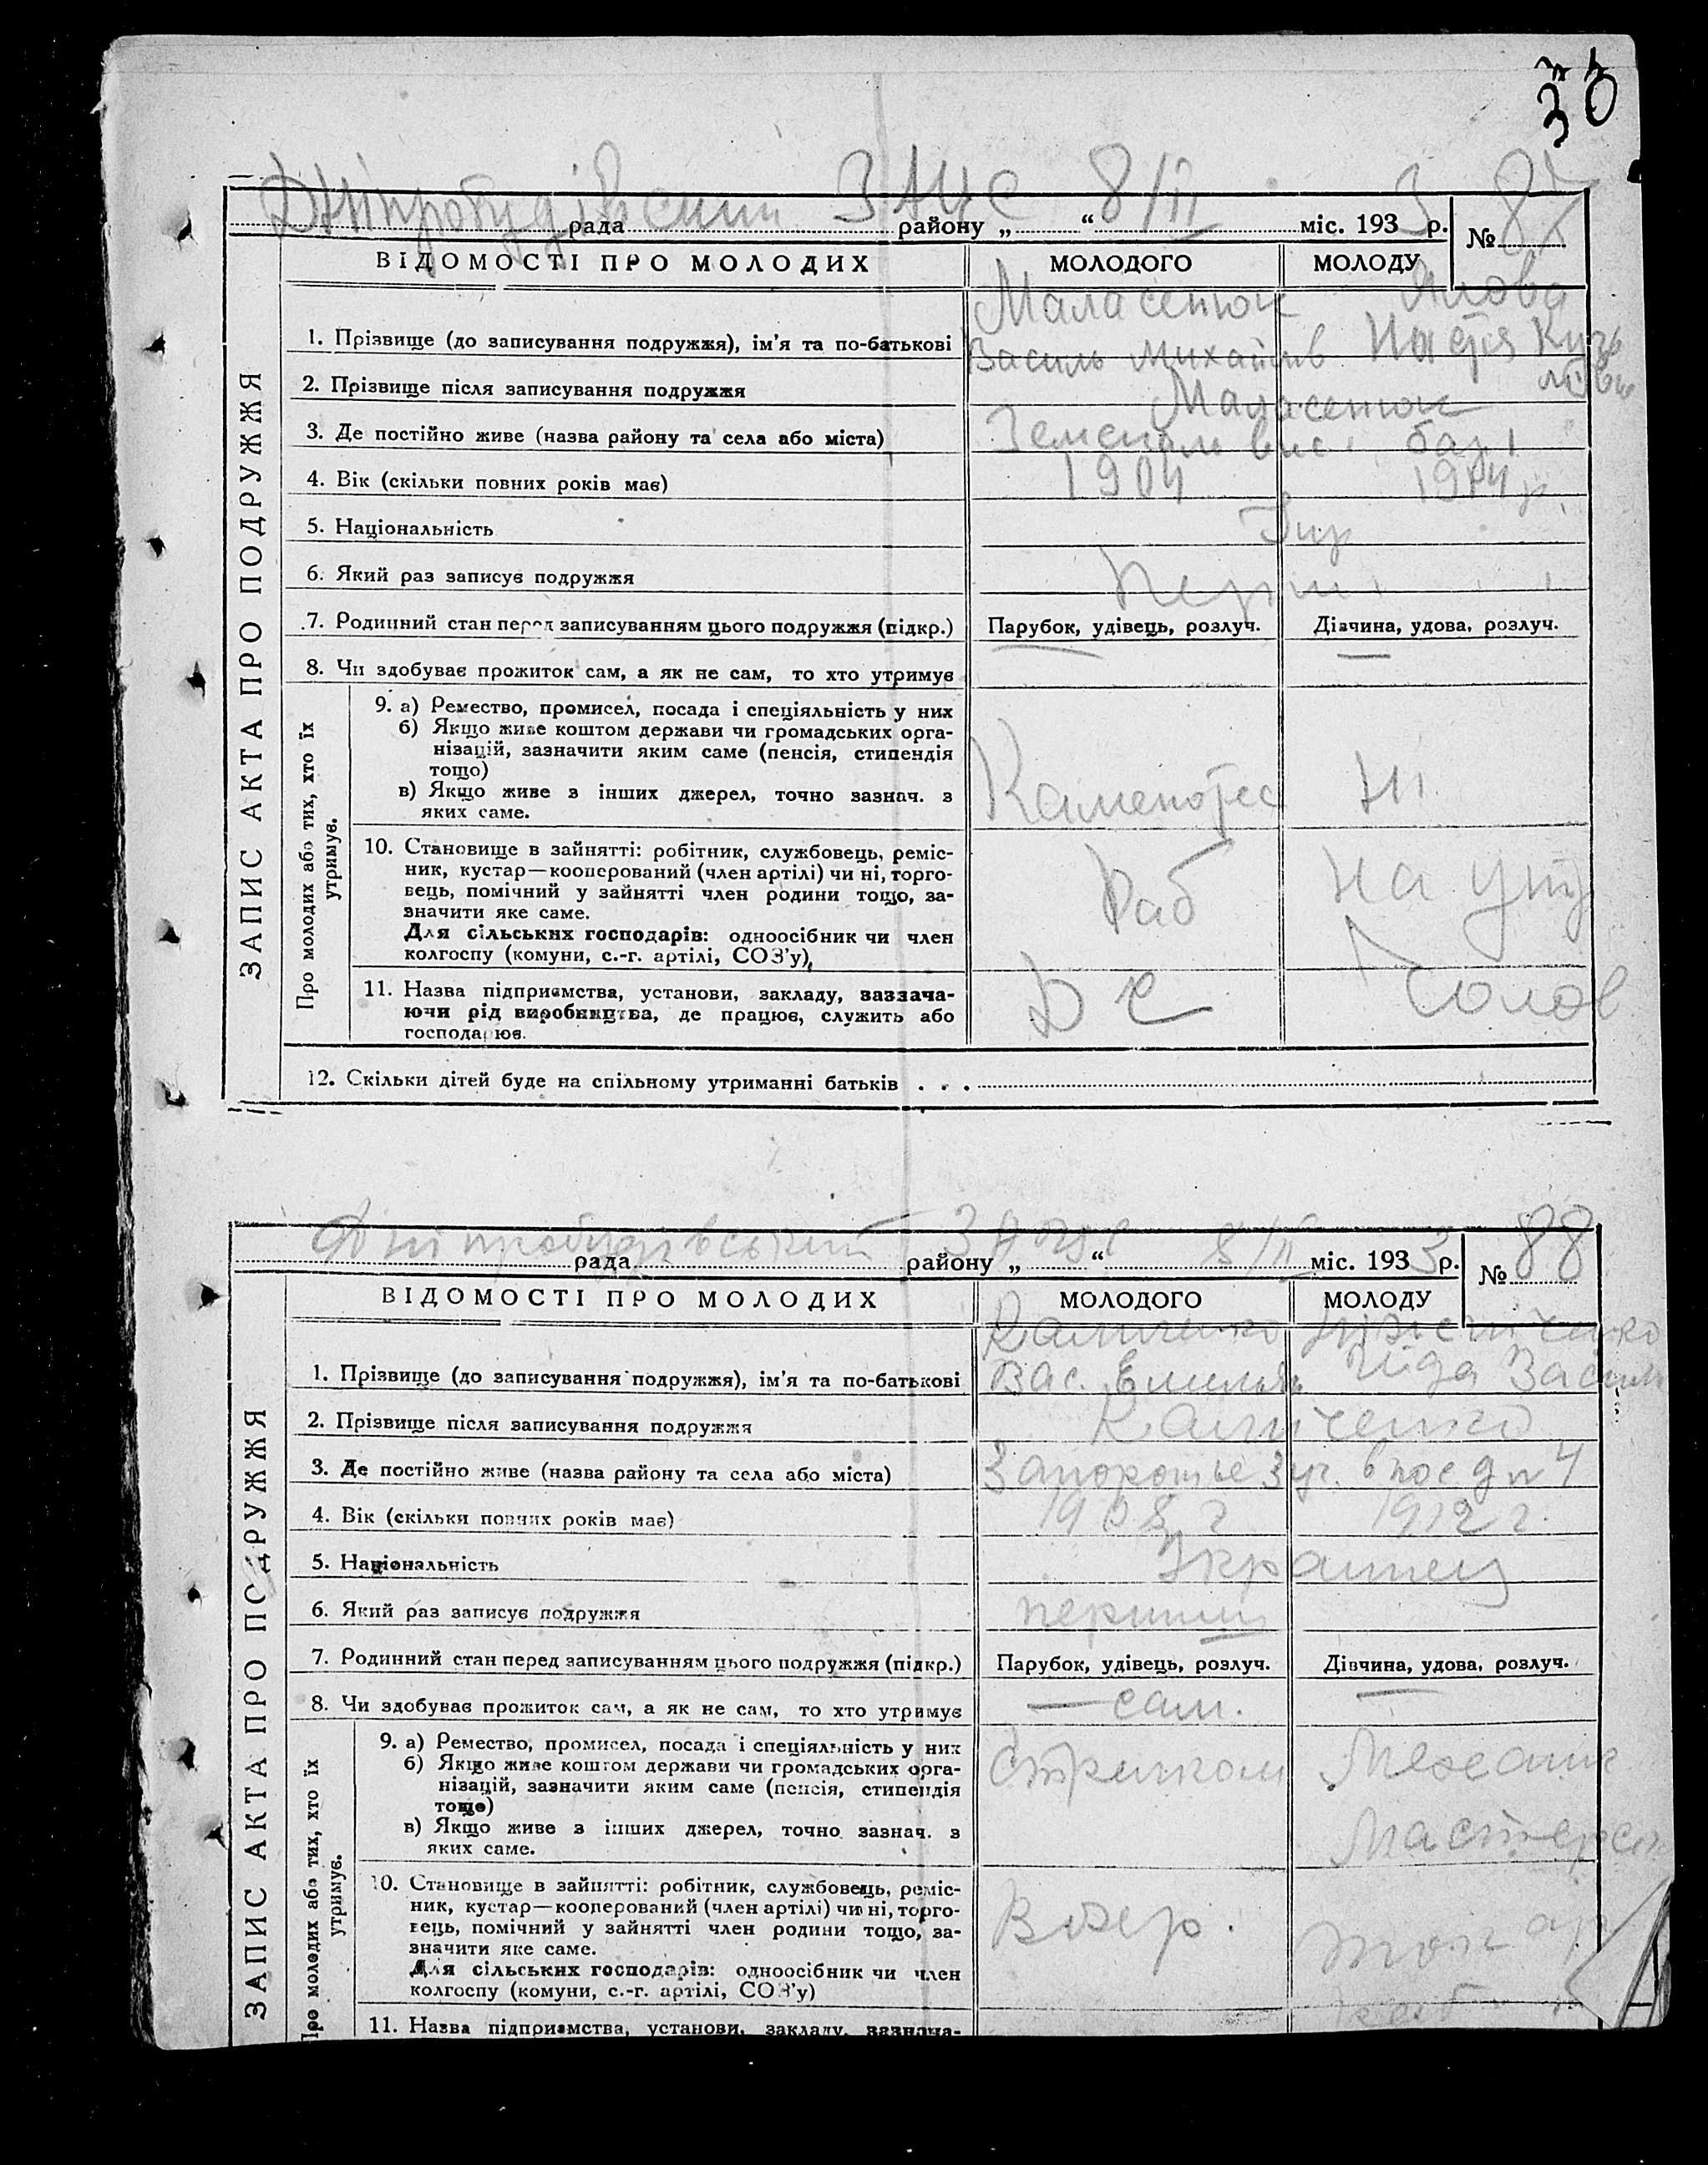 Дніпробудівський ЗАЦС 8/II
рада району „ “ міс. 1933 р. № 87
ВІДОМОСТІ ПРО МОЛОДИХ МОЛОДОГО МОЛОДУ
ЗАПИС АКТА ПРО ПОДРУЖЖЯ
Маласенюк
1. Прізвище (до записування подружжя), ім'я та по-батькові Василь Михайлів Настя Кузь
2. Прізвище після записування подружжя Маласенюк
3. Де постійно живе (назва району та села або міста) бар.
4. Вік (скільки повних років має) 1904 1914 р.
5. Національність Укр
6. Який раз записує подружжя Перш.
7. Родинний стан перед записуванням цього подружжя (підкр.) Парубок, удівець, розлуч. Дівчина, удова, розлуч.
8. Чи здобуває прожиток сам, а як не сам, то хто утримує
Про молодих або тих, хто їх утримує.
9. а) Ремество, промисел, посада і спеціяльність у них
б) Якщо живе коштом держави чи громадських орга-
нізацій, зазначити яким саме (пенсія, стипендія
тощо)
в) Якщо живе з інших джерел, точно зазнач. з
яких саме.
Каменотес Ні
10. Становище в зайнятті: робітник, службовець, реміс-
ник, кустар—кооперований (член артілі) чи ні, торго-
вець, помічний у зайнятті член родини тощо, за-
значити яке саме.
Для сільських господарів: одноосібник чи член
колгоспу (комуни, с.-г. артілі, СОЗ'у),
Раб на утр
11. Назва підприємства, установи, закладу, зазнача-
ючи рід виробництва, де працює, служить або
господарює.
ДС Чолов
12. Скільки дітей буде на спільному утриманні батьків . . .
Дніпробудівський ЗАЦС 8/II
рада району „ “ міс. 1933 р. № 88
ВІДОМОСТІ ПРО МОЛОДИХ МОЛОДОГО МОЛОДУ
ЗАПИС АКТА ПРО ПОДРУЖЖЯ
1. Прізвище (до записування подружжя), ім'я та по-батькові Вас. Емильян. Васил
2. Прізвище після записування подружжя
3. Де постійно живе (назва району та села або міста) Запорожье 3 уч. 4
4. Вік (скільки повних років має) 1908 г 1912 г.
5. Національність Украинец
6. Який раз записує подружжя перший
7. Родинний стан перед записуванням цього подружжя (підкр.) Парубок, удівець, розлуч. Дівчина, удова, розлуч.
8. Чи здобуває прожиток сам, а як не сам, то хто утримує сам.
Про молодих або тих, хто їх утримує.
9. а) Ремество, промисел, посада і спеціяльність у них
б) Якщо живе коштом держави чи громадських орга-
нізацій, зазначити яким саме (пенсія, стипендія
тощо)
в) Якщо живе з інших джерел, точно зазнач. з
яких саме.
Стрелком Механ
Мастерск
10. Становище в зайнятті: робітник, службовець, реміс-
ник, кустар—кооперований (член артілі) чи ні, торго-
вець, помічний у зайнятті член родини тощо, за-
значити яке саме.
Для сільських господарів: одноосібник чи член
колгоспу (комуни, с.-г. артілі, СОЗ'у)
токар
11. Назва підприємства, установи, закладу, зазнача-